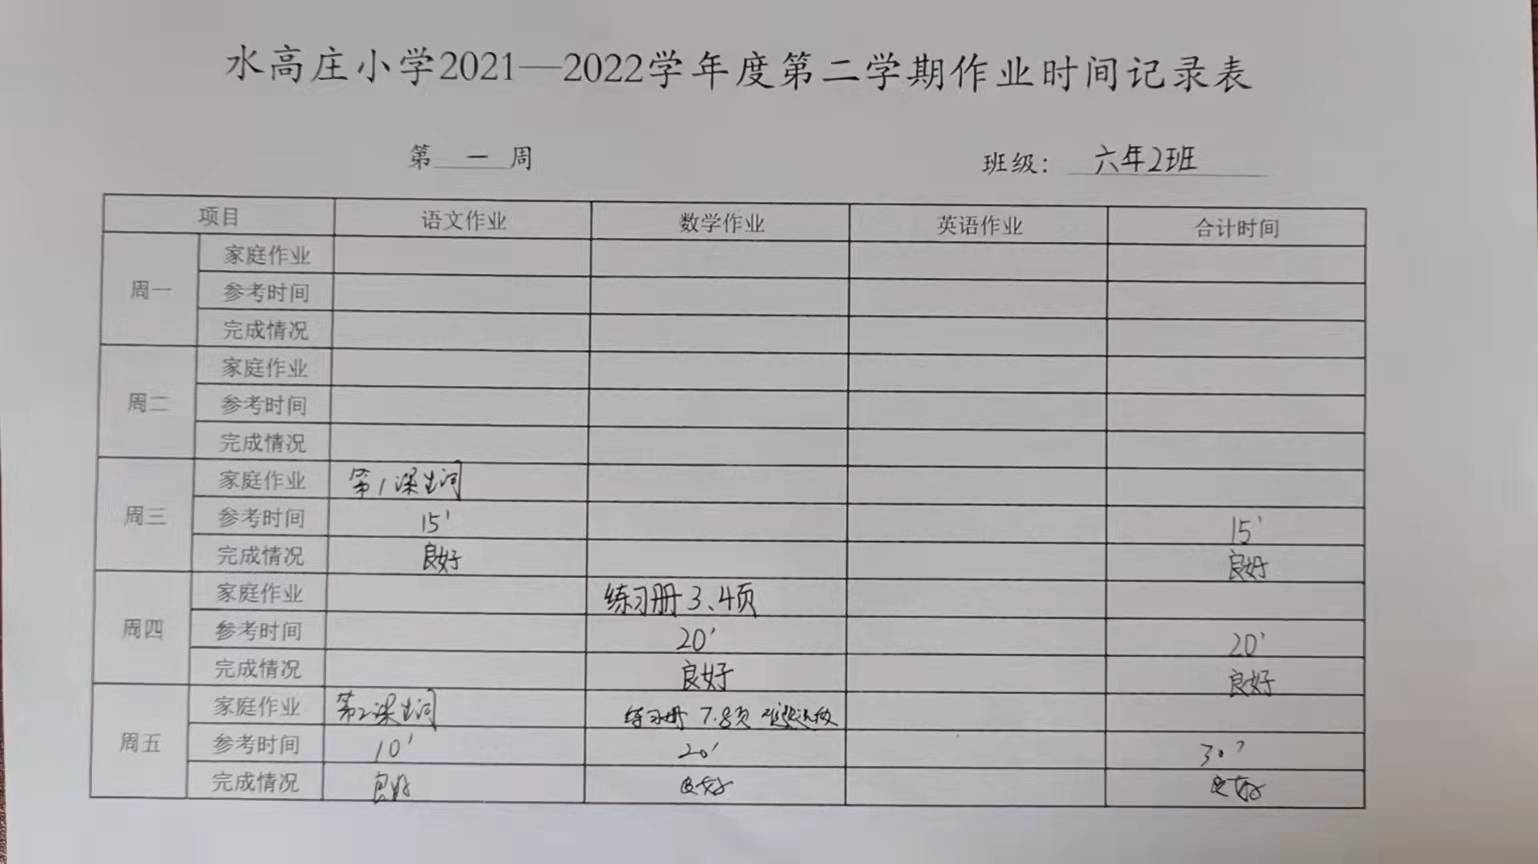 水高庄小学2021—2022学年度第二学期作业时间记录表
第 一 周 班级： 六年2班
项目 语文作业 数学作业 英语作业 合计时间
周一
家庭作业
参考时间
完成情况
周二
家庭作业
参考时间
完成情况
周三
家庭作业 第1课生词
参考时间 15' 15'
完成情况 良好 良好
周四
家庭作业 练习册 3、4页
参考时间 20' 20'
完成情况 良好 良好
周五
家庭作业 第2课生词 练习册 7.8页
参考时间 10' 20' 30'
完成情况 良好 良好 良好